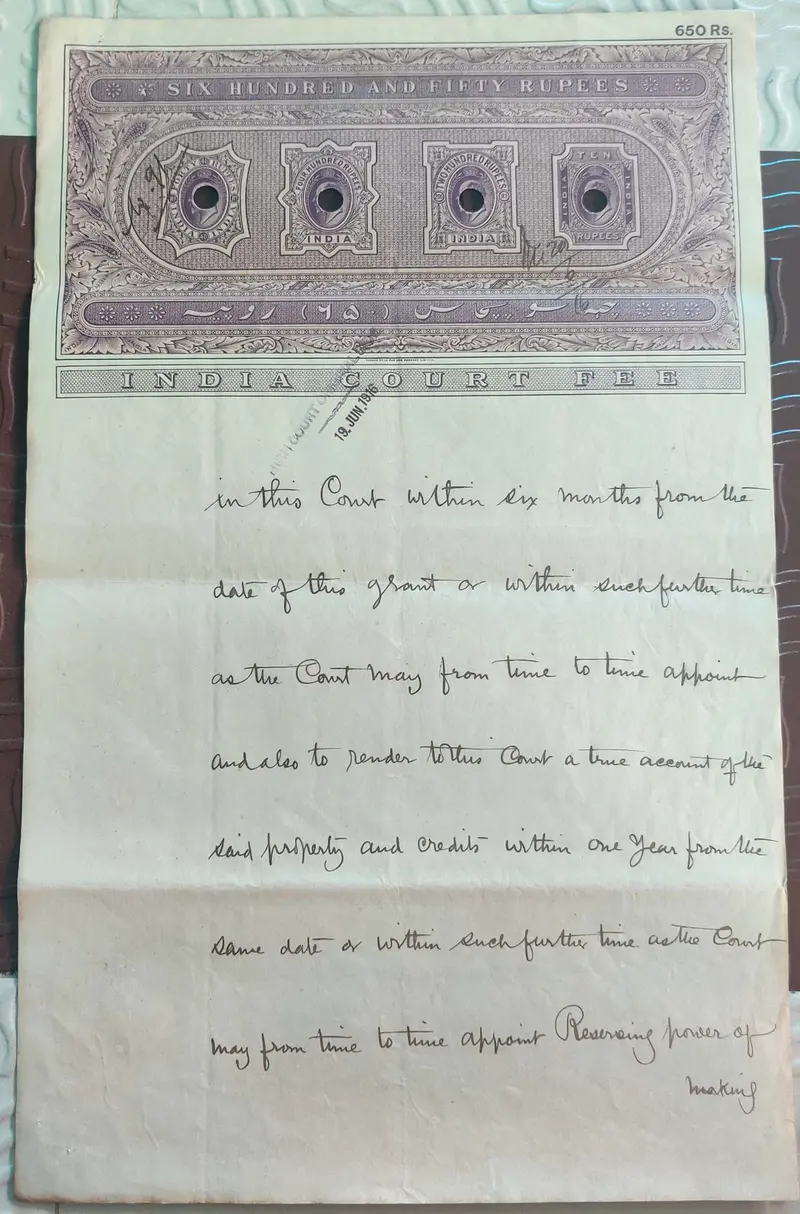 650 Rs.
SIX HUNDRED AND FIFTY RUPEES
FOUR HUNDRED RUPEES
INDIA
TWO HUNDRED RUPEES
INDIA
TEN
INDIA
INDIA
RUPEES
چھہ سو پچاس (۶۵۰) روپیہ
INDIA COURT FEE
19. JUN. 1916
in this Court within six months from the
date of this grant or within such further time
as the Court may from time to time appoint
and also to render to this Court a true account of the
said property and credits within one Year from the
same date or within such further time as the Court
may from time to time appoint Reserving power of
making